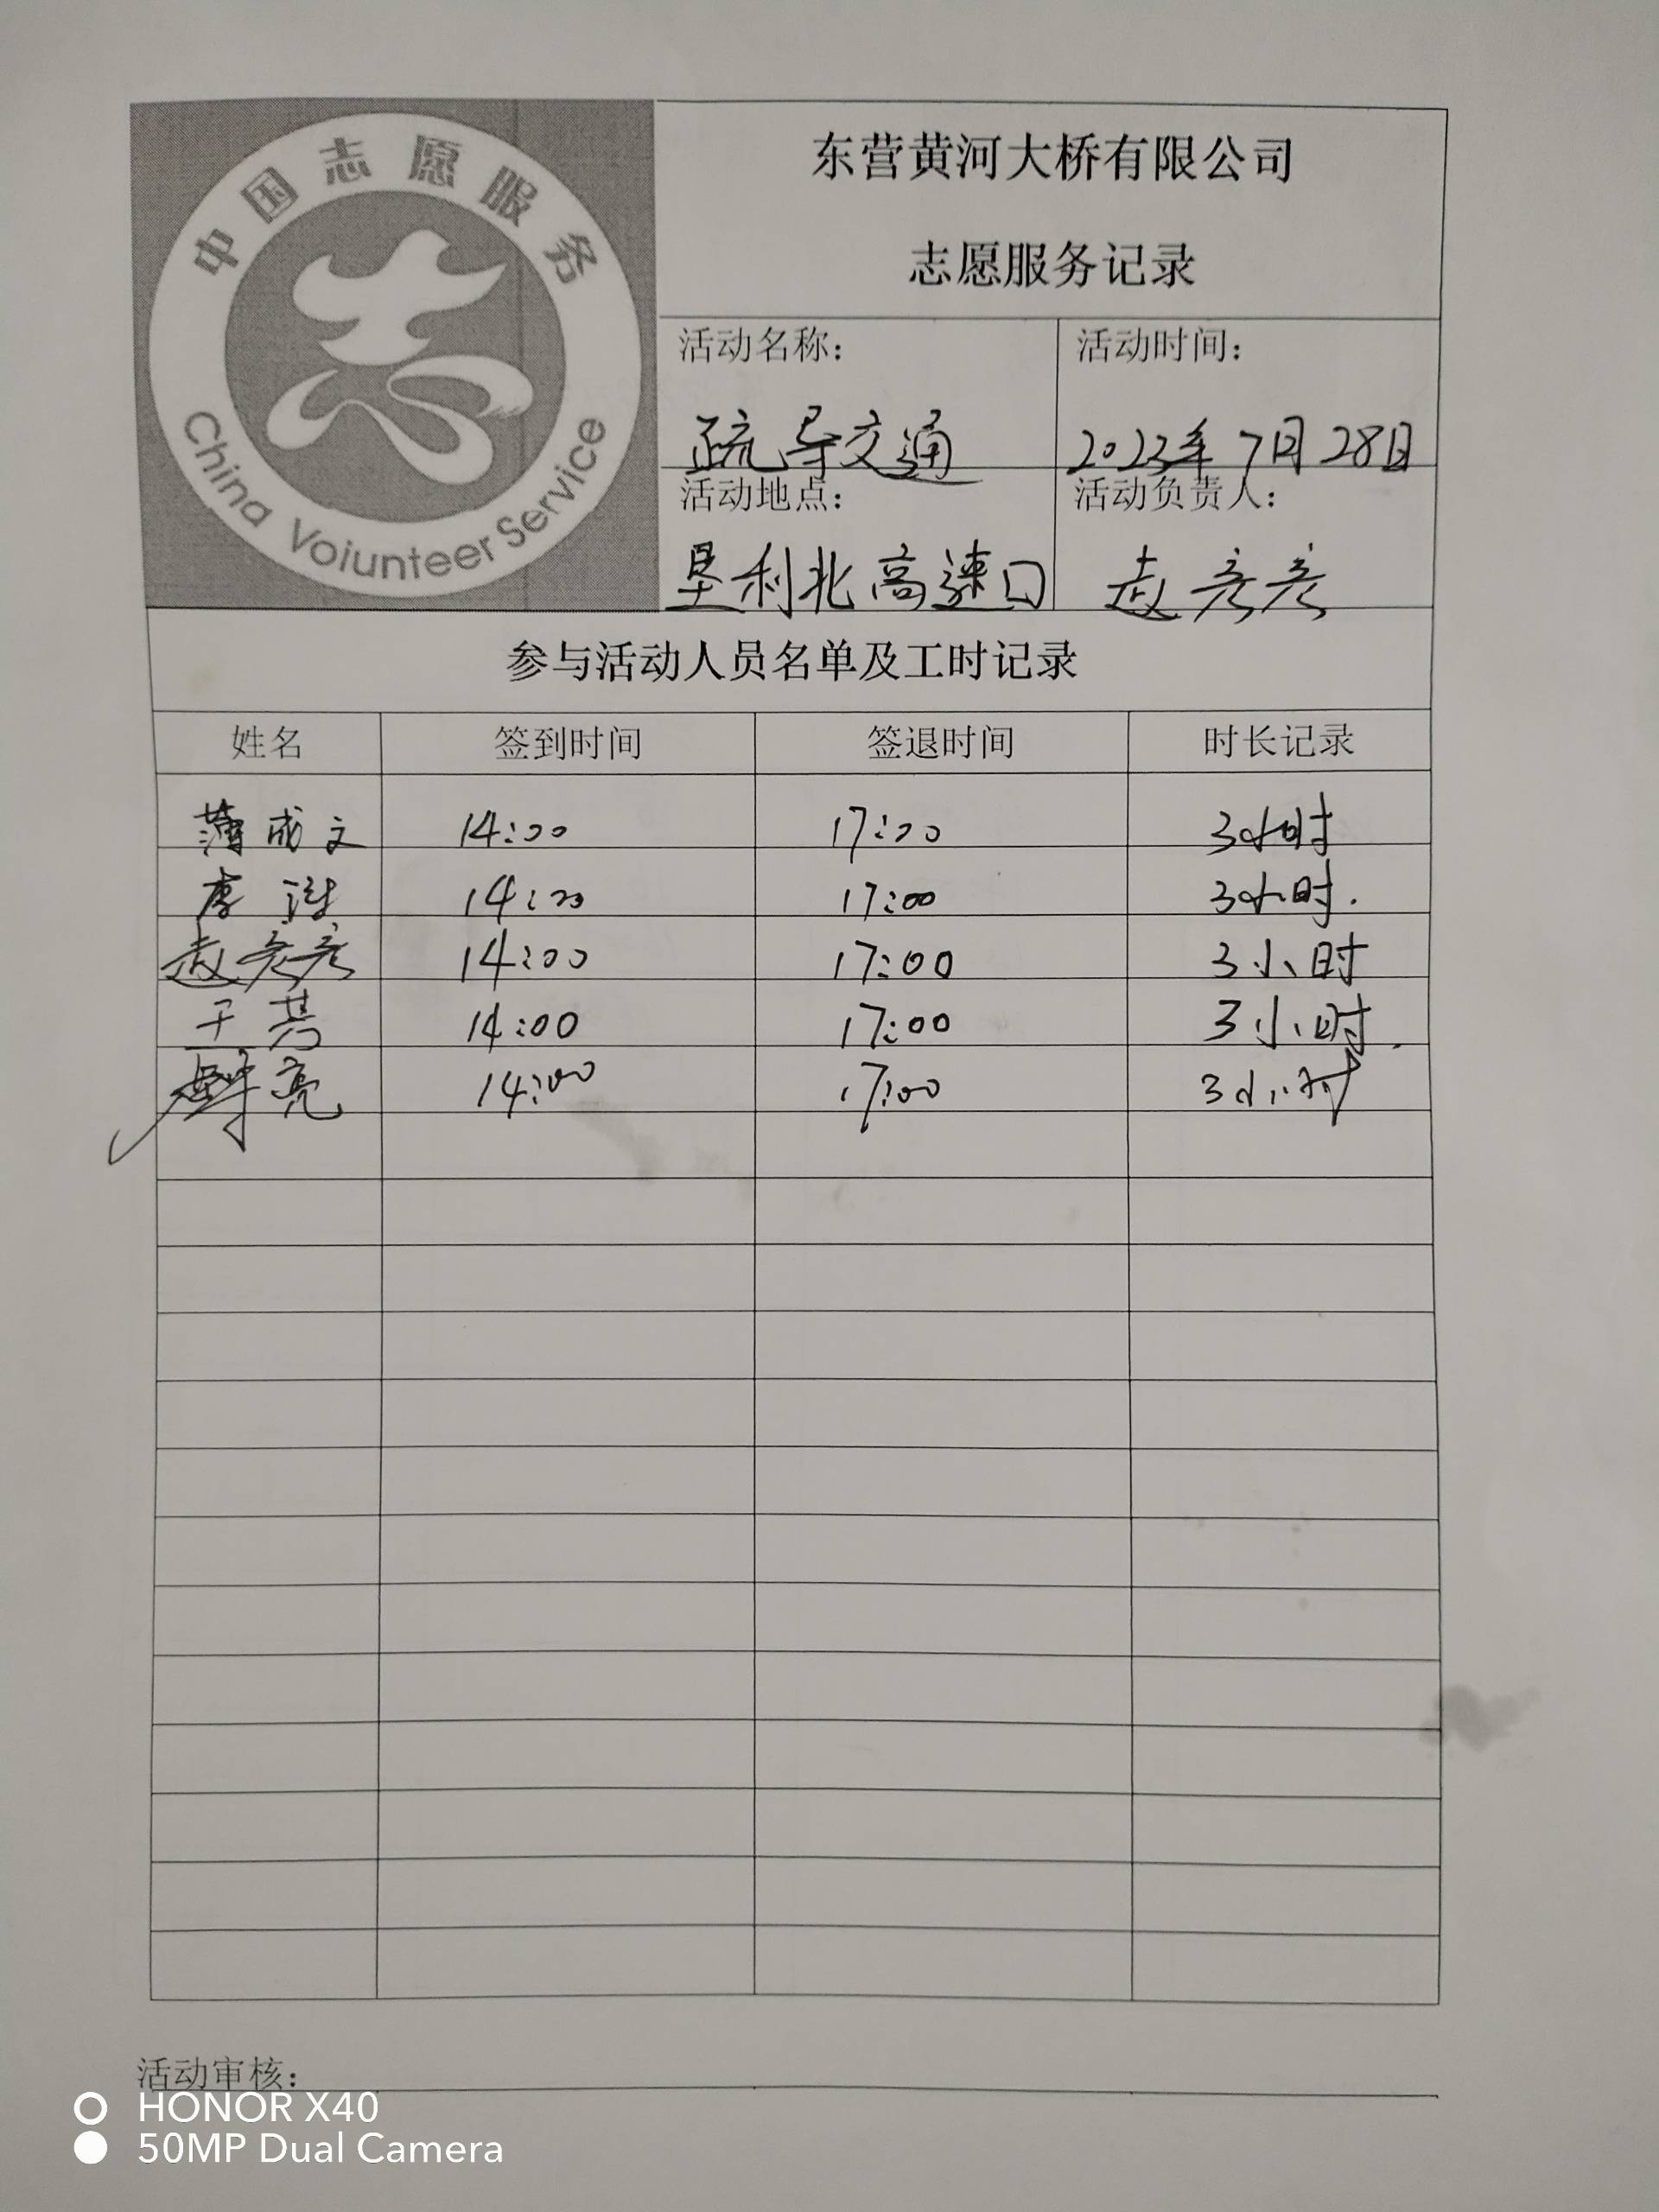 中国志愿服务
China Voiunteer Service
东营黄河大桥有限公司
志愿服务记录
活动名称: 活动时间:
疏导交通 2023年7月28日
活动地点: 活动负责人:
垦利北高速口 赵彦彦
参与活动人员名单及工时记录
姓名 签到时间 签退时间 时长记录
薄成文 14:00 17:00 3小时
李 14:00 17:00 3小时.
赵彦彦 14:00 17:00 3小时
14:00 17:00 3小时.
亮 14:00 17:00 3小时
活动审核:
HONOR X40
50MP Dual Camera